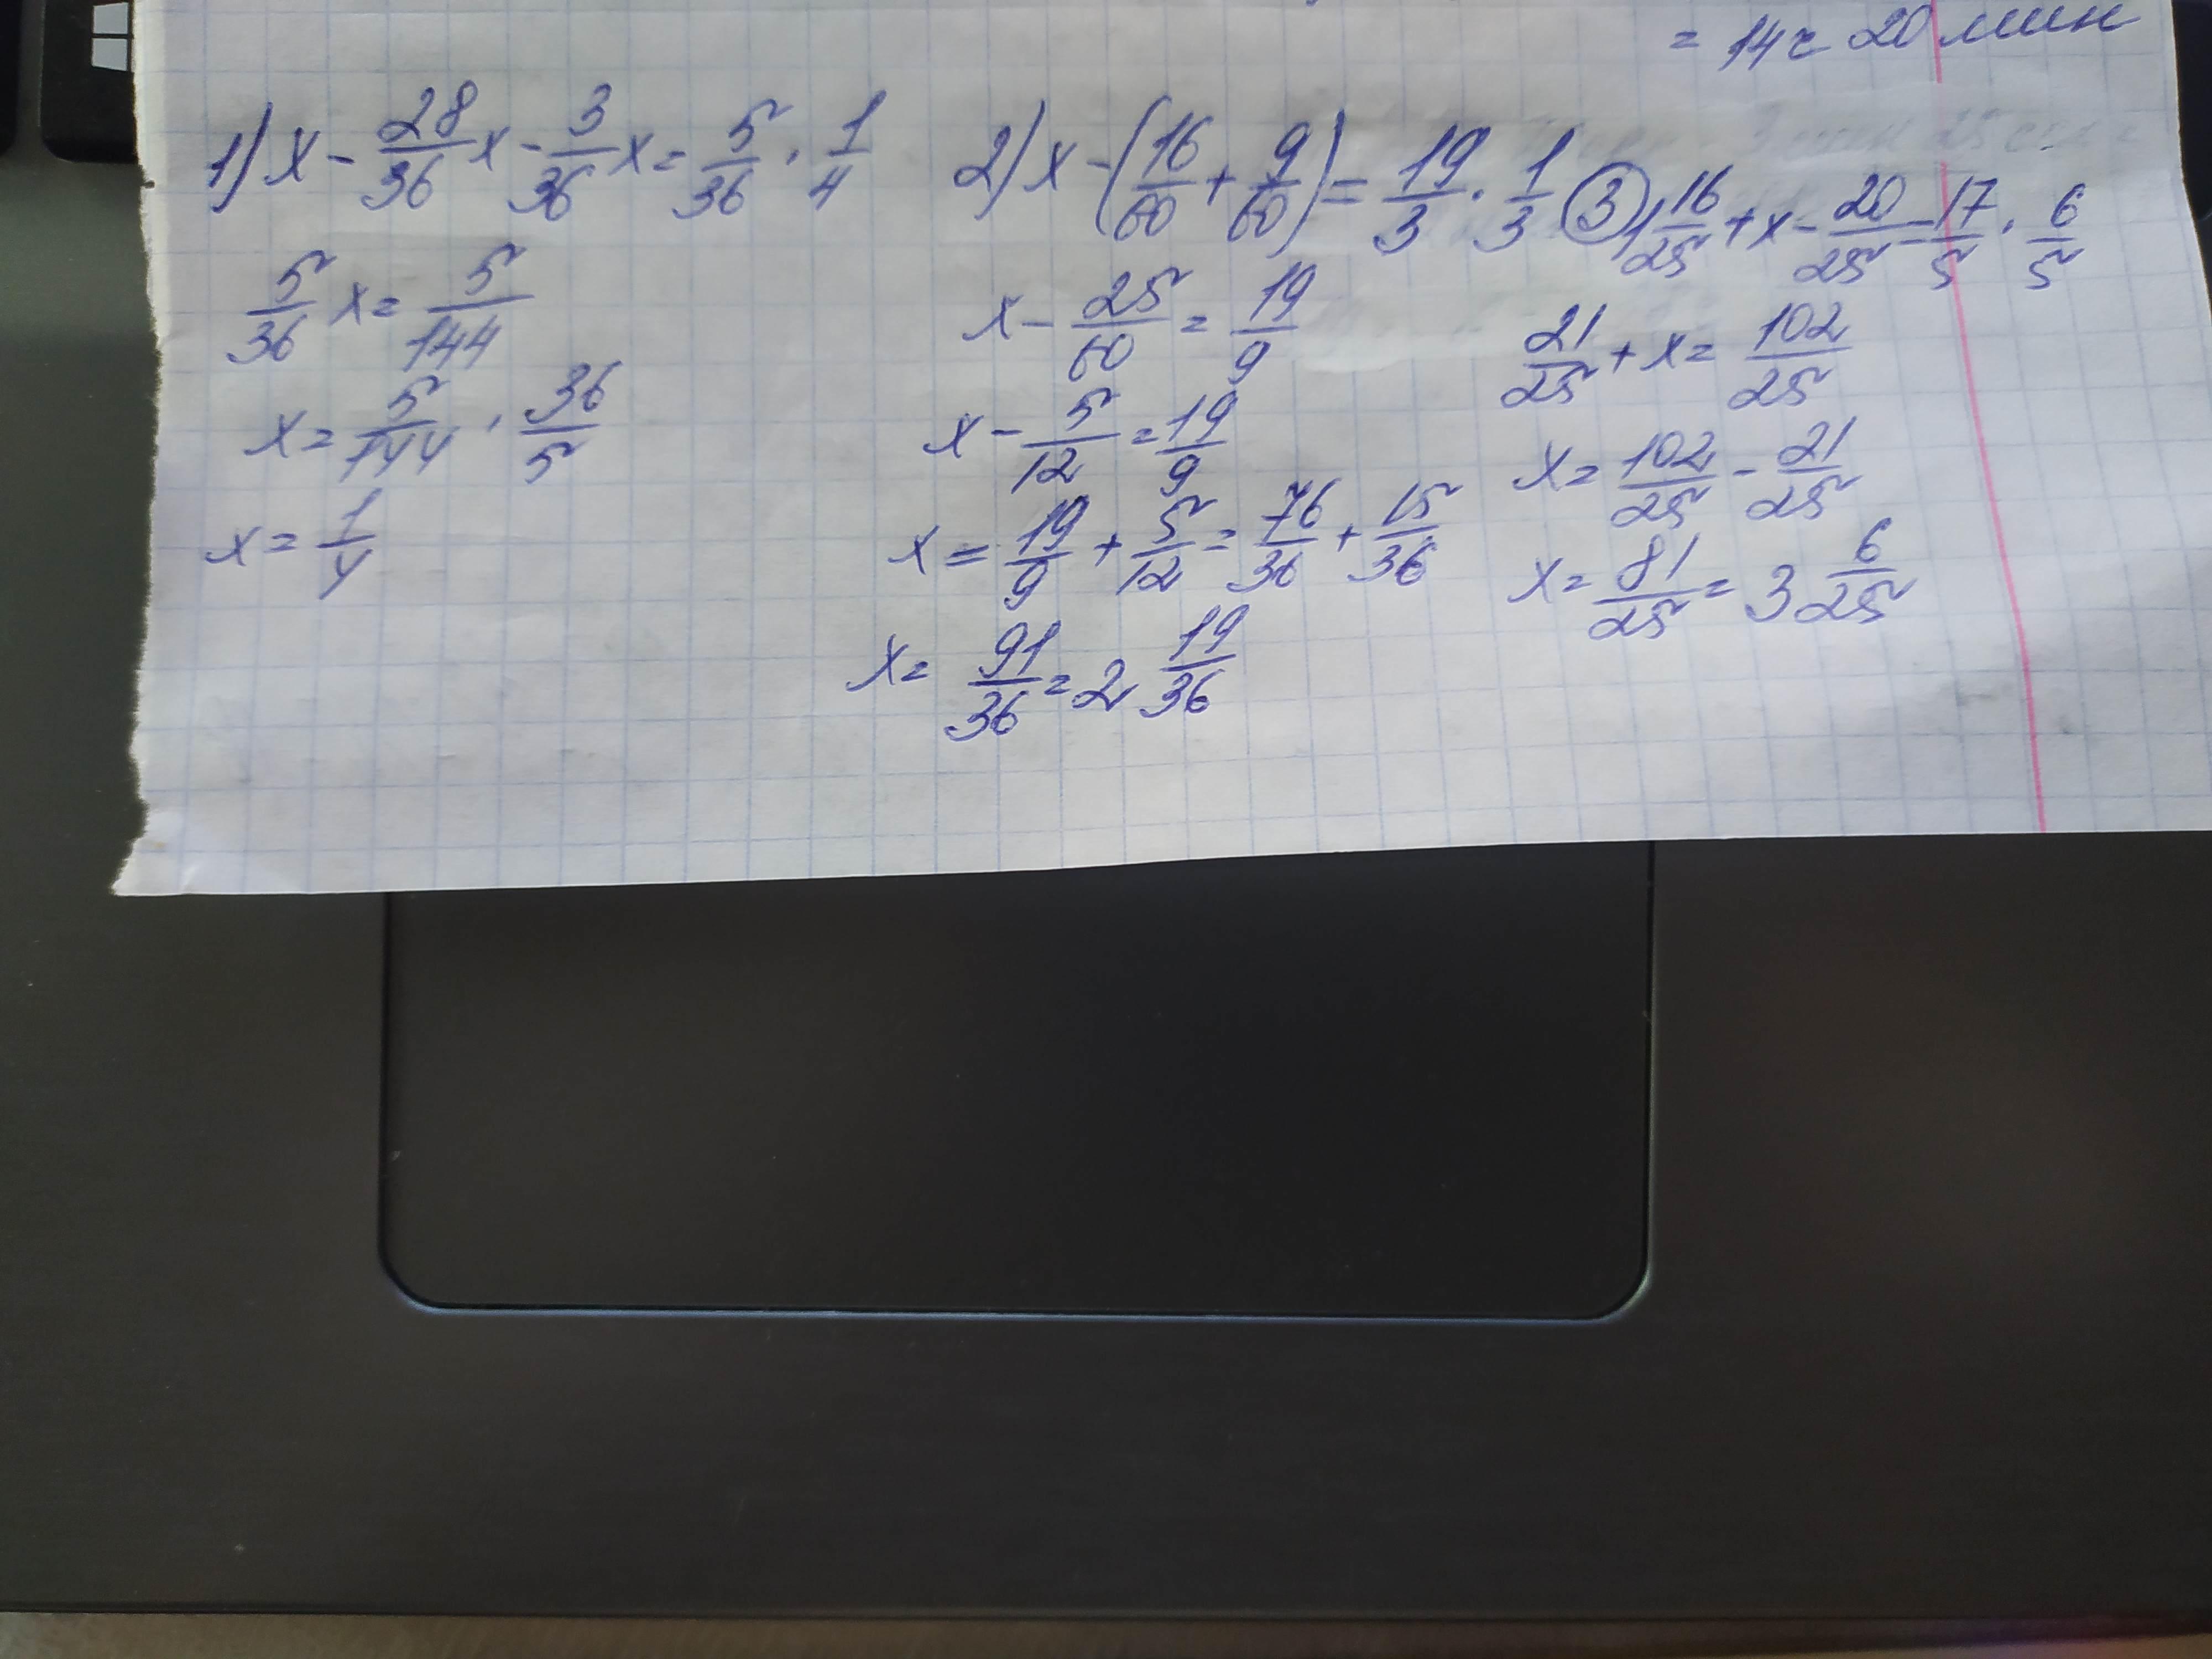 = 14ч 20 мин
1) x - 28/36 x - 3/36 x = 5/36 · 1/4
5/36 x = 5/144
x = 5/144 · 36/5
x = 1/4
2) x - (16/60 + 9/60) = 19/3 · 1/3
x - 25/60 = 19/9
x - 5/12 = 19/9
x = 19/9 + 5/12 = 76/36 + 15/36
x = 91/36 = 2 19/36
3 1 16/25 + x - 20/25 = 17/5 · 6/5
21/25 + x = 102/25
x = 102/25 - 21/25
x = 81/25 = 3 6/25